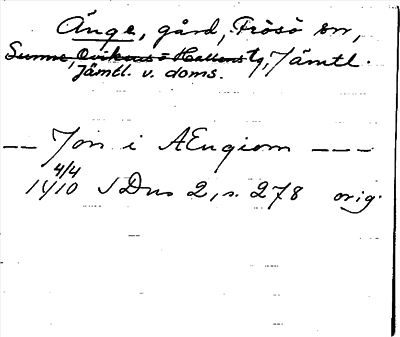 Änge, gård, Frösö sn,
Sunne, Ovikens o Hallens tg, Jämtl.
Jämtl. v. doms.
-- Jon i AEngiom ---
4/4
1410 SDns 2, s. 278 orig.